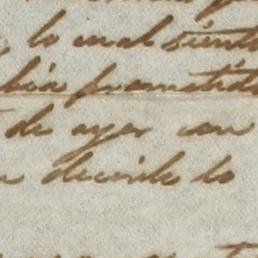 lo cual siento
bia prometido
de ayer con
decirle lo